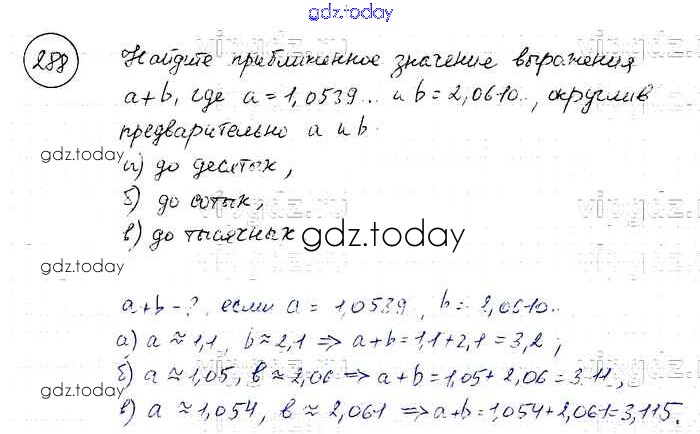 gdz.today
288 Найдите приближенное значение выражения
a+b, где a=1,0539... и b=2,0610..., округлив
предварительно a и b
gdz.today
а) до десятых,
б) до сотых,
в) до тысячных gdz.today
gdz.today
a+b-?, если a = 1,0539.., b=2,0610..
а) a≈1,1, b≈2,1 => a+b=1,1+2,1=3,2;
gdz.today
б) a≈1,05, b≈2,06 => a+b=1,05+2,06=3,11,
в) a≈1,054, b≈2,061 => a+b=1,054+2,061=3,115.